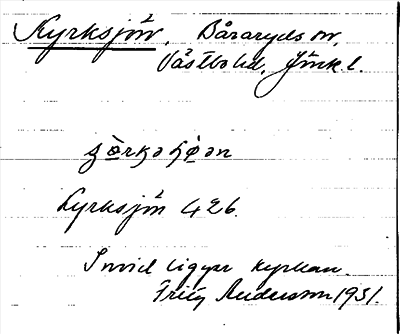 Kyrksjön, Båraryds sn,
Västbo hd, Jönk. l.
Kyrksjön 426.
Invid ligger kyrkan.
Fritz Andersson 1931.